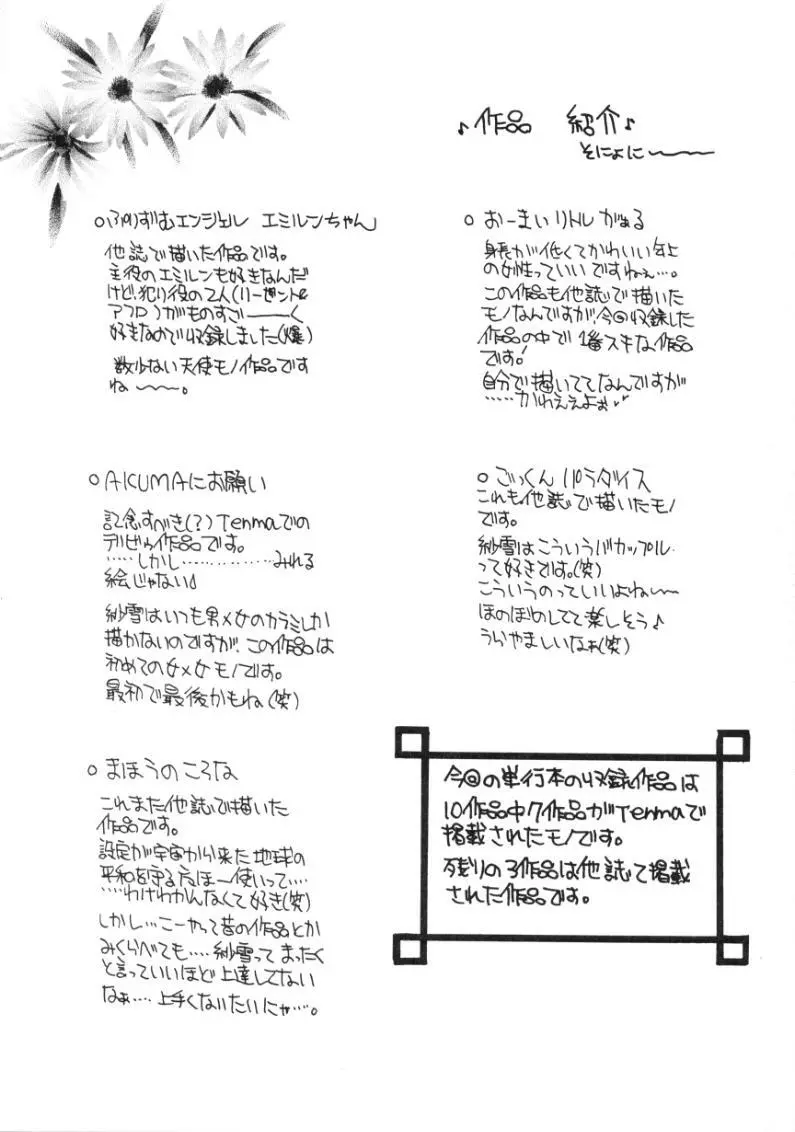 ♪作品 紹介♪
そにょに〜〜〜
○ぷりずむエンジェル エミルンちゃん」
他誌で描いた作品です。
主役のエミルンも好きなんだ
けど、犯り役の2人(リーゼントと
アフロ)がものすごーーーく
好きなので収録しました(爆)
数少ない天使モノ作品です
ね〜〜〜。
○AKUMAにお願い
記念すべき(?)Tenmaでの
デビゥ作品です。
……しかし……………みれる
絵じゃない♪
紗雪はいつも男×女のカラミしか
描かないのですが、この作品は
初めての女×女モノです。
最初で最後かもね(笑)
○まほうのころな
これまた他誌で描いた
作品です。
設定が宇宙から来た地球の
平和を守る まほー使いって……
……わけわかんなくて好き(笑)
しかし…こーやって昔の作品とか
みくらべても……紗雪って まったく
と言っていいほど上達してない
なぁ……上手くないたいにゃ……。
○おーまい リトル がぁる
身長が低くてかわいい年上
の女性っていいですねぇ…。
この作品も他誌で描いた
モノなんですが、今回収録した
作品の中で1番スキな作品
です!
自分で描いててなんですが
……かわええよぉ
○ごっくん パラダイス
これも他誌で描いたモノ
です。
紗雪はこういうバカップル
って好きです。(笑)
こういうのっていいよね〜〜
ほのぼのしてて楽しそう♪
うらやましいなぁ(笑)
今回の単行本の収録作品は
10作品中7作品がTenmaで
掲載されたモノです。
残りの3作品は他誌で掲載
された作品です。